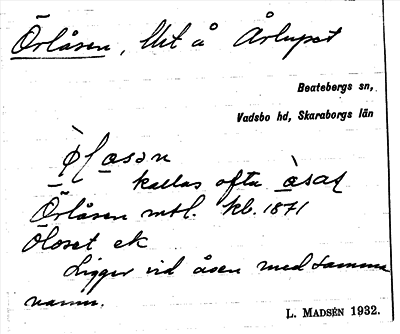 Örlåsen, Ut å Årlupet
Beatebergs sn,
Vadsbo hd, Skaraborgs län
kallas ofta àsaɽ
Örlåsen mtl. kb. 1871
Öloset ek
Ligger vid åsen med samma
namn.
L. MADSÉN 1932.